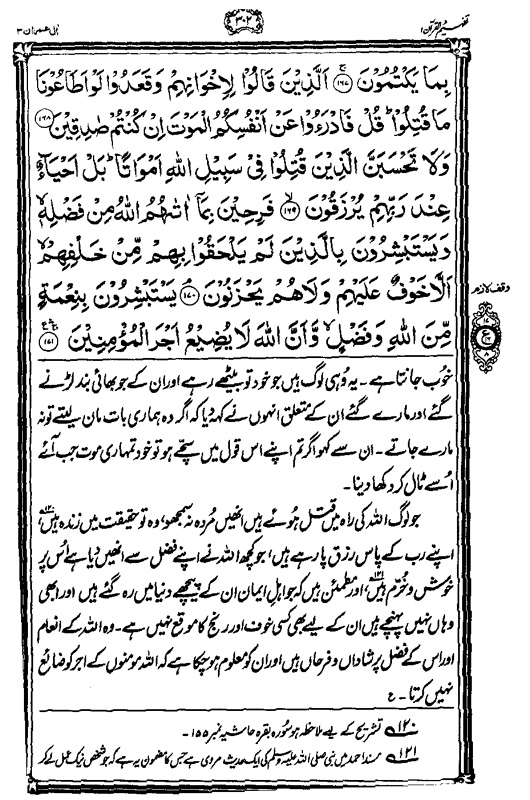 تفہیم القرآن ۱
۳۰۲
اٰل عمران ۳
بِمَا يَكْتُمُوْنَ ۝۱۶۷ۚ اَلَّذِيْنَ قَالُوْا لِاِخْوَانِهِمْ وَقَعَدُوْا لَوْ اَطَاعُوْنَا
مَا قُتِلُوْا ؕ قُلْ فَادْرَءُوْا عَنْ اَنْفُسِكُمُ الْمَوْتَ اِنْ كُنْتُمْ صٰدِقِيْنَ ۝۱۶۸
وَلَا تَحْسَبَنَّ الَّذِيْنَ قُتِلُوْا فِيْ سَبِيْلِ اللّٰهِ اَمْوَاتًا ؕ بَلْ اَحْيَآءٌ
عِنْدَ رَبِّهِمْ يُرْزَقُوْنَ ۝۱۶۹ۙ فَرِحِيْنَ بِمَاۤ اٰتٰىهُمُ اللّٰهُ مِنْ فَضْلِهٖ ۙ
وَيَسْتَبْشِرُوْنَ بِالَّذِيْنَ لَمْ يَلْحَقُوْا بِهِمْ مِّنْ خَلْفِهِمْ ۙ
اَلَّا خَوْفٌ عَلَيْهِمْ وَلَا هُمْ يَحْزَنُوْنَ ۝۱۷۰ۘ يَسْتَبْشِرُوْنَ بِنِعْمَةٍ
مِّنَ اللّٰهِ وَفَضْلٍ ۙ وَّاَنَّ اللّٰهَ لَا يُضِيْعُ اَجْرَ الْمُؤْمِنِيْنَ ۝۱۷۱
وقف لازم
۱۷
ع
۸
خُوب جانتا ہے۔ یہ وُہی لوگ ہیں جو خود تو بیٹھے رہے اور ان کے جو بھائی بند لڑنے
گئے اور مارے گئے ان کے متعلق انہوں نے کہہ دیا کہ اگر وہ ہماری بات مان لیتے تو نہ
مارے جاتے۔ ان سے کہو اگر تم اپنے اس قول میں سچّے ہو تو خود تمہاری موت جب آئے
اُسے ٹال کر دکھا دینا۔
جو لوگ اللہ کی راہ میں قتل ہُوئے ہیں انھیں مُردہ نہ سمجھو، وہ تو حقیقت میں زندہ ہیں،۱۲۰
اپنے رب کے پاس رزق پا رہے ہیں، جو کچھ اللہ نے اپنے فضل سے انھیں دیا ہے اُس پر
خوش و خُرّم ہیں،۱۲۱ اور مطمئن ہیں کہ جو اہلِ ایمان ان کے پیچھے دنیا میں رہ گئے ہیں اور ابھی
وہاں نہیں پہنچے ہیں ان کے لیے بھی کسی خوف اور رنج کا موقع نہیں ہے۔ وہ اللہ کے انعام
اور اس کے فضل پر شاداں و فرحاں ہیں اور ان کو معلوم ہو چکا ہے کہ اللہ مومنوں کے اجر کو ضائع
نہیں کرتا۔ ع
۱۲۰ تشریح کے لیے ملاحظہ ہو سُورۂ بقرہ حاشیہ نمبر ۱۵۵۔
۱۲۱ مسند احمد میں نبی صلی اللہ علیہ وسلم کی ایک حدیث مروی ہے جس کا مضمون یہ ہے کہ جو شخص نیک عمل لے کر